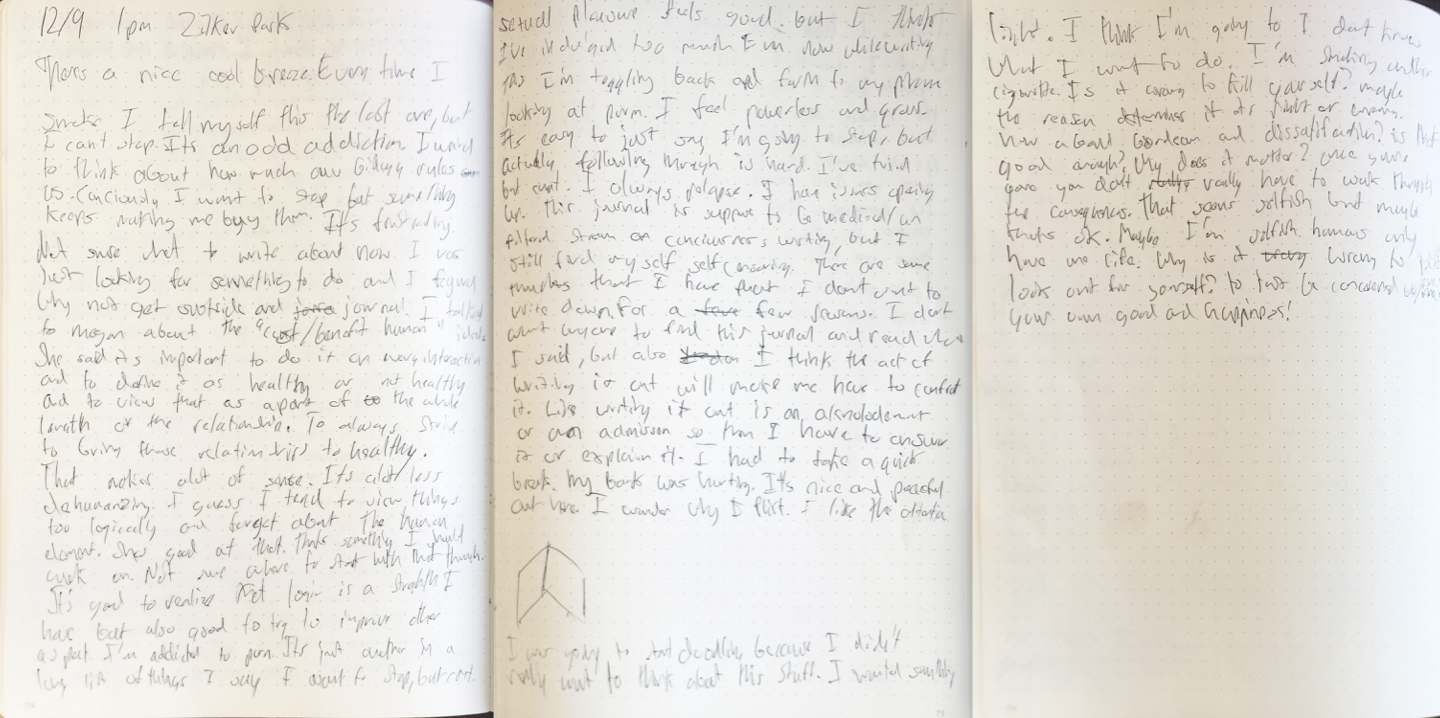 12/9 1pm Zilker Park
Theres a nice cool breeze. Every time I
smoke I tell myself this the last one, but
I can't stop. Its an odd addiction. I want
to think about how much our biology rules
us. Conciously I want to stop but something
keeps making me buy them. It's frustrating.
Not sure what to write about now. I was
just looking for something to do and I figured
why not get outside and journal. I talked
to megan about the "cost/benefit human" idea
She said its important to do it on every interaction
and to define it as healthy or not healthy
and to view that as a part of the whole
length of the relationship. To always strive
to bring those relationships to healthy.
That makes alot of sense. Its alot less
dehumanizing. I guess I tend to view things
too logically and forget about the human
element. Shes good at that. Thats something I should
work on. Not sure where to start with that though.
It's good to realize that logic is a strength I
have but also good to try to improve other
aspect. I'm addicted to porn. Its just another in a
long list of things I say I want to stop, but cant.
sexual pleasure feels good. but I think
I've indulged too much. Even now while writing
this I'm toggling back and forth to my phone
looking at porn. I feel powerless and gross.
Its easy to just say I'm going to stop, but
actually following through is hard. I've tried
but cant. I always relapse. I have issues opening
up. This journal is suppose to be
filtered stream of conciousness writing, but I
still find my self self censoring. There are some
thoughts that I have that I dont want to
write down for a few reasons. I dont
want anyone to find this journal and read what
I said, but also I think the act of
writing it out will make me have to confront
it. Like writing it out is an
or an admission so then I have to answer
it or explain it. I had to take a quick
break. my back was hurting. It's nice and peaceful
out here. I wonder why I flirt. I like the
I was going to start doodling because I didn't
really want to think about this stuff. I wanted something
light. I think I'm going to I dont know
what I want to do. I'm smoking another
cigarette. Is it wrong to kill yourself? maybe
the reason determines if its right or wrong.
how about boredom and dissatisfaction? is that
good enough? Why does it matter? once you're
gone you dont really have to work through
the consequences. That seems selfish but maybe
thats ok. Maybe I'm selfish. humans only
have one life. Why is it wrong to
look out for yourself? to just be concerned
your own good and happiness!